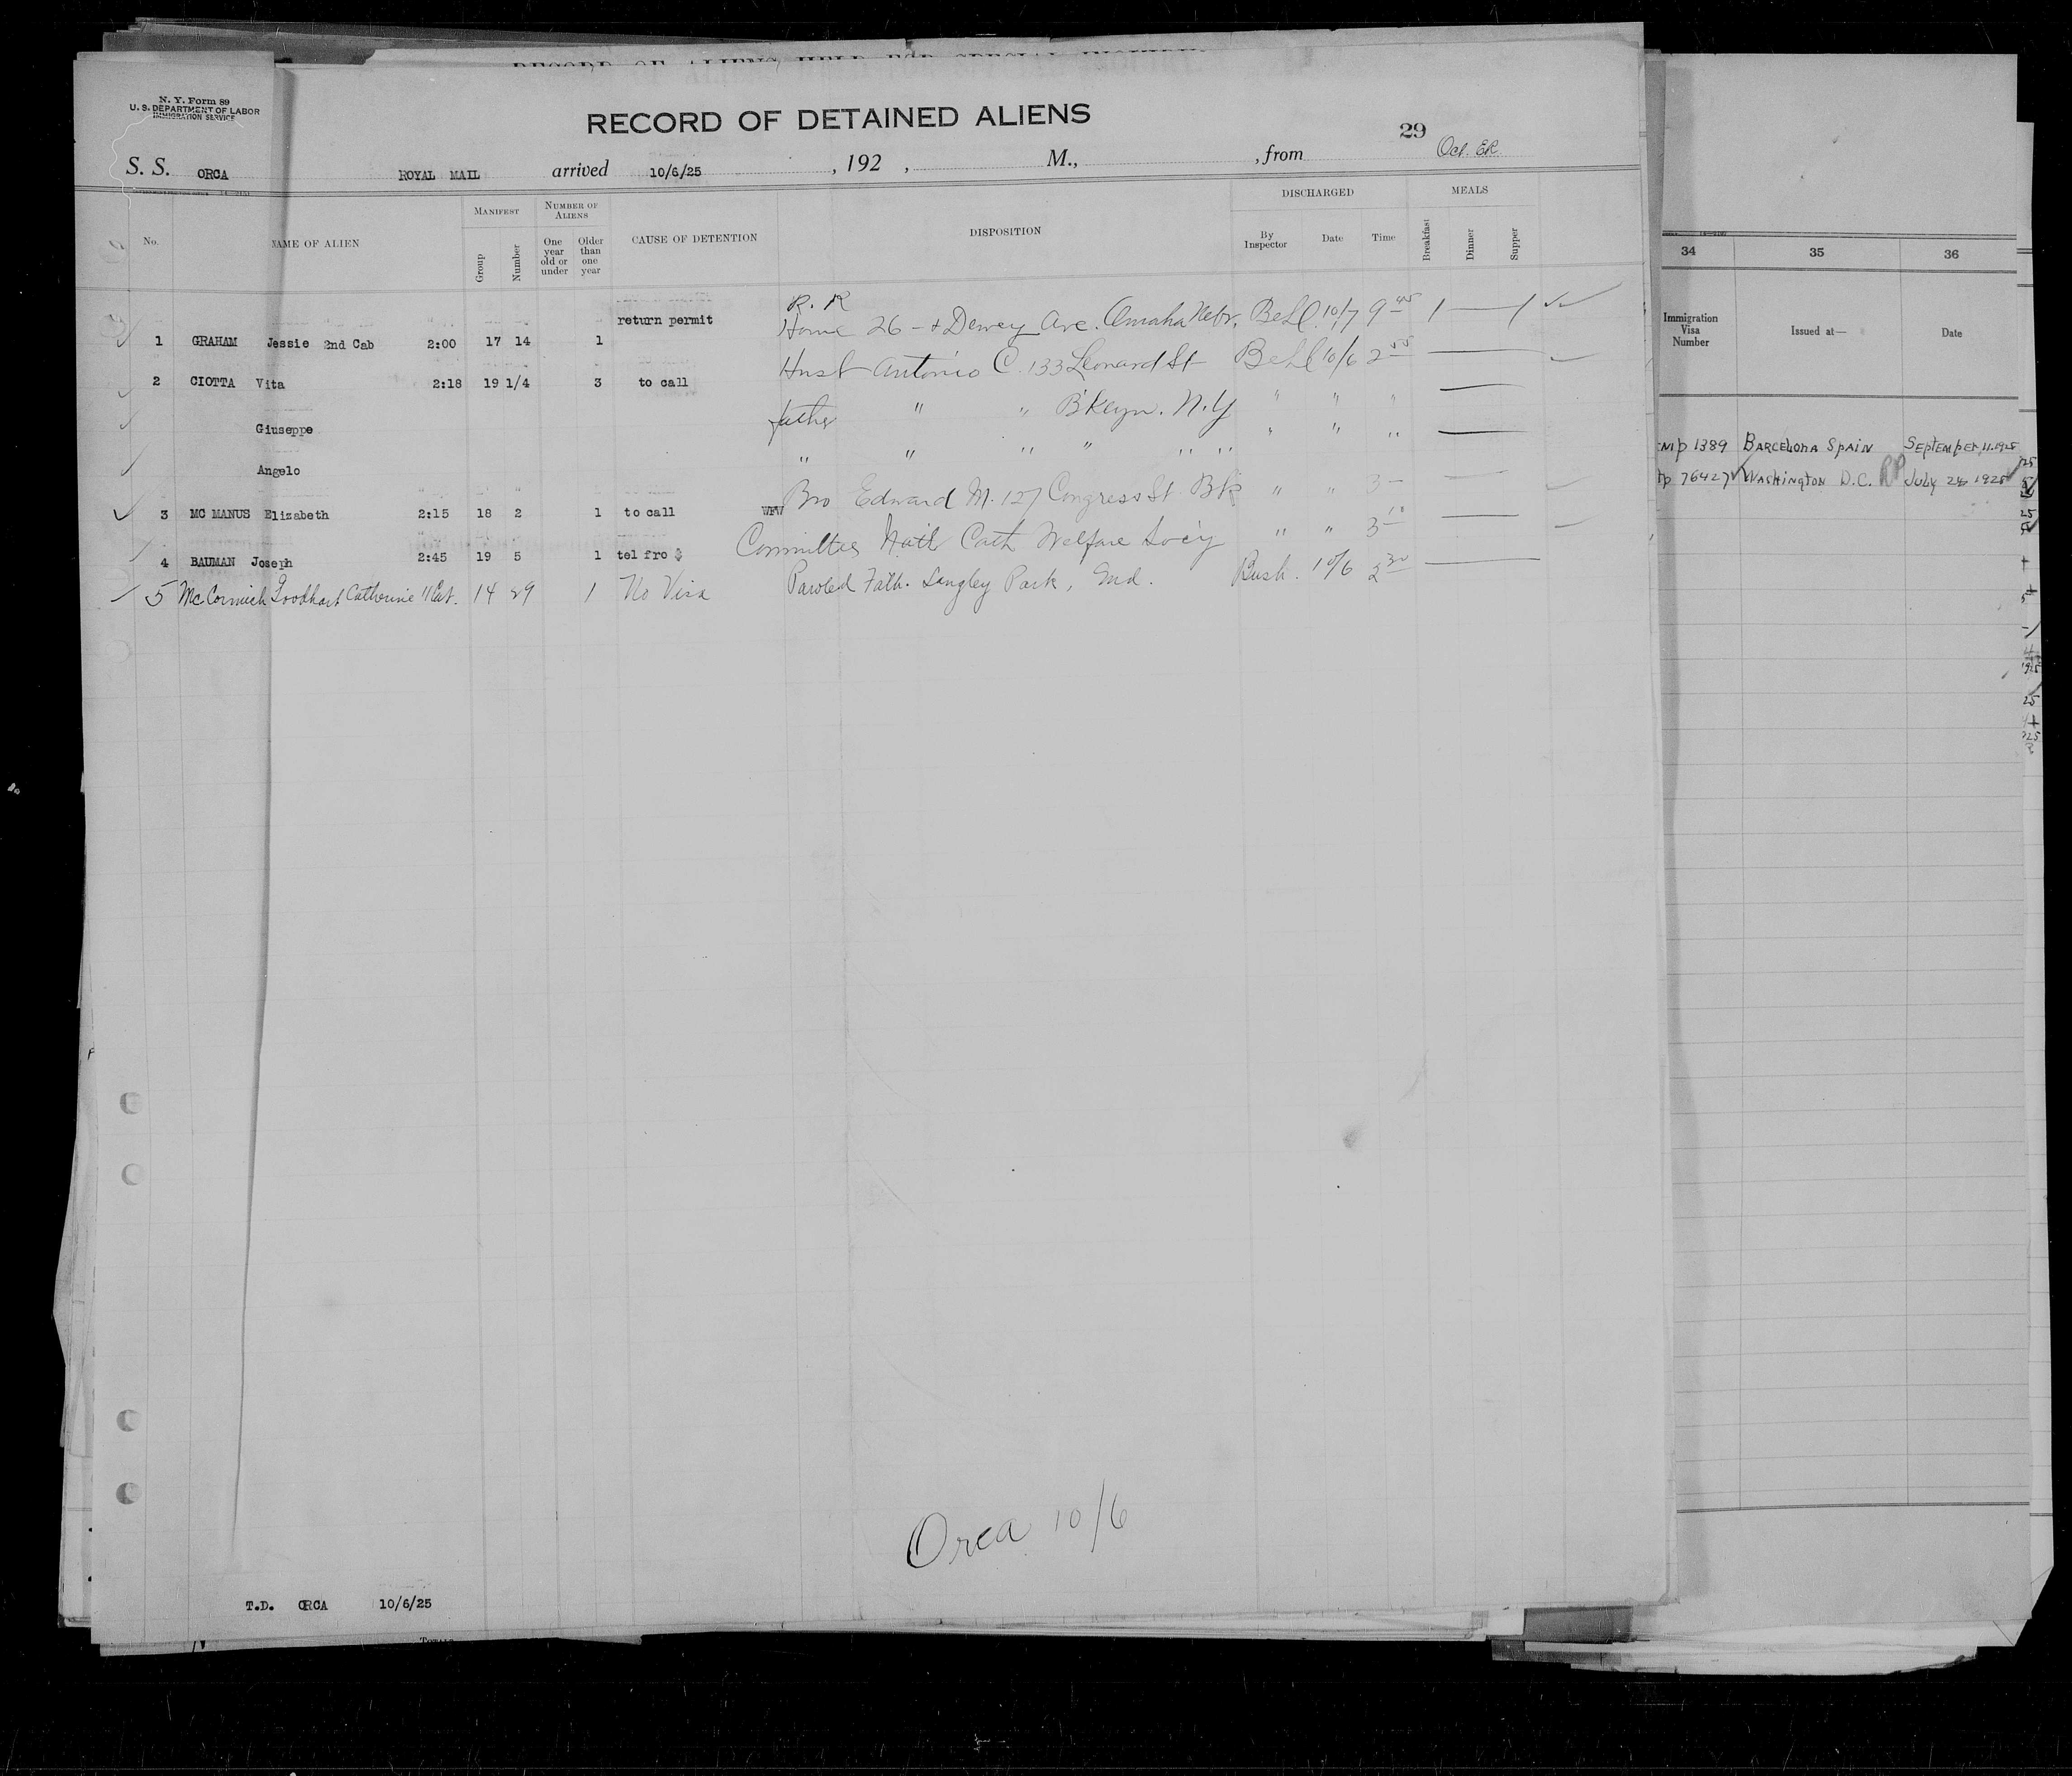 N. Y. Form 89
U. S. DEPARTMENT OF LABOR
IMMIGRATION SERVICE
RECORD OF ALIENS HELD FOR SPECIAL INQUIRY
RECORD OF DETAINED ALIENS
29
Oct. ER.
S. S. ORCA ROYAL MAIL arrived 10/6/25 , 192 , M., , from
No. NAME OF ALIEN MANIFEST Group Number NUMBER OF ALIENS One year old or under Older than one year CAUSE OF DETENTION DISPOSITION DISCHARGED By Inspector Date Time MEALS Breakfast Dinner Supper
R. R
1 GRAHAM Jessie 2nd Cab 2:00 17 14 1 return permit Home 26 - + Dewey Ave. Omaha Nebr. Bell 10/7 9 45 1 — 1
2 CIOTTA Vita 2:18 19 1/4 3 to call Husb Antonio C. 133 Leonard St Bell 10/6 2 55 —
Giuseppe father " " B'klyn. N.Y " " " —
Angelo " " " " " " " " " —
3 MC MANUS Elizabeth 2:15 18 2 1 to call WFW Bro Edward M. 127 Congress St. Bk " " 3 — —
4 BAUMAN Joseph 2:45 19 5 1 tel fro $ Committee Natl Cath Welfare Soc'y " " 3 10 —
5 McCormick Goodhart Catherine 1 Cab. 14 29 1 No Visa Paroled Fath. Langley Park, Md. Bush. 10/6 2 30 —
Orca 10/6
T.D. ORCA 10/6/25
34 35 36
Immigration Visa Number Issued at— Date
1389 BARCELONA SPAIN SEPTEMBER 11.1925
76427 WASHINGTON D.C. July 28 1925